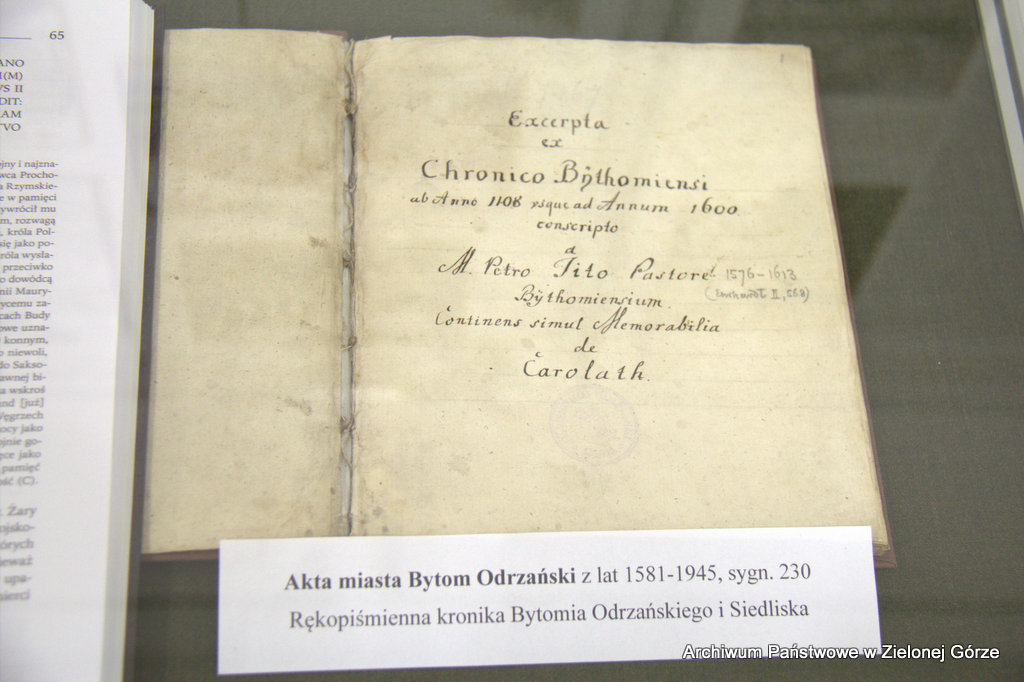 65
ANO
I(M)
VS II
DIT:
AM
TVO
jny i najzna-
wca Procho-
a Rzymskie-
e w pamięci
ywrócił mu
m, rozwagą
, króla Pol-
się jako po-
róla wysła-
przeciwko
o dowódcą
nii Maury-
ycemu za-
cach Budy
owe uzna-
konnym,
o niewoli,
do Sakso-
awnej bi-
a wskroś
und [już]
Węgrzech
ocy jako
ojnie go-
ęce jako
pamięć
ość (C).
Żary
ojsko-
órych
ieważ
upa-
mierci
Excerpta
ex
Chronico Bÿthomiensi
ab Anno 1108 vsque ad Annum 1600.
conscripto
a
M. Petro Tito Pastore 1576-1613
Bÿthomiensium. II, 568)
Continens simul Memorabilia
de
Carolath.
Akta miasta Bytom Odrzański z lat 1581-1945, sygn. 230
Rękopiśmienna kronika Bytomia Odrzańskiego i Siedliska
Archiwum Państwowe w Zielonej Górze